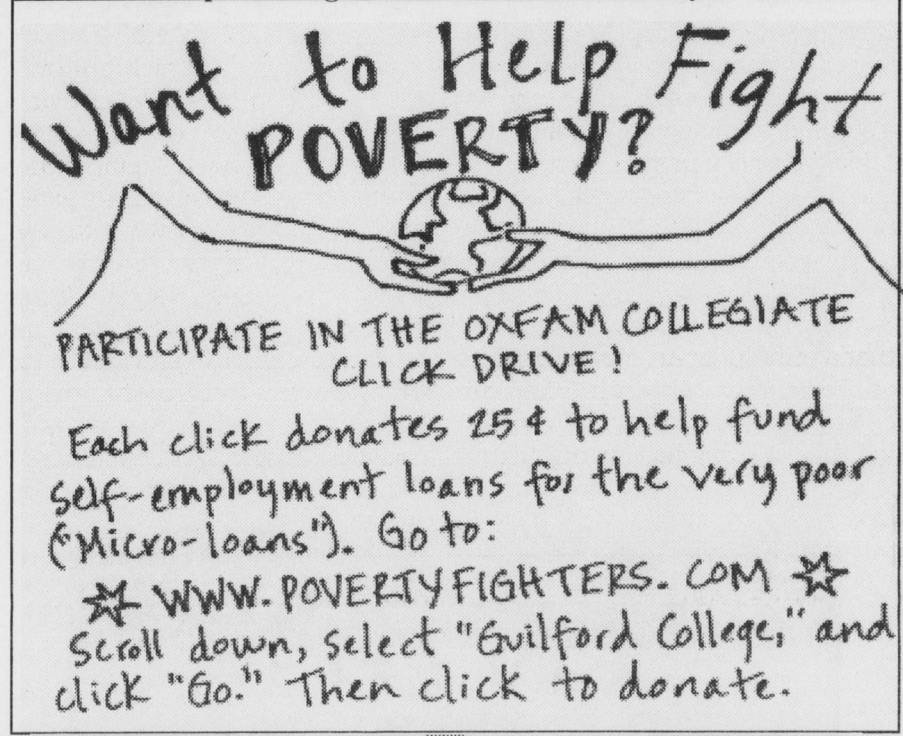 Want to Help Fight
POVERTY?
PARTICIPATE IN THE OXFAM COLLEGIATE
CLICK DRIVE!
Each click donates 25¢ to help fund
self-employment loans for the very poor
("Micro-loans"). Go to:
☆ WWW.POVERTYFIGHTERS.COM ☆
Scroll down, select "Guilford College," and
click "Go." Then click to donate.